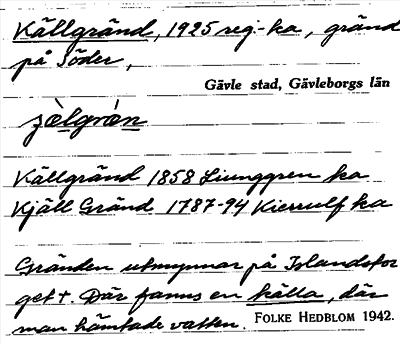 Källgränd, 1925 reg.-ka, gränd
på Söder,
Gävle stad, Gävleborgs län
Källgränd 1858 Ljunggren ka
Kjäll Gränd 1787-94 Kierrulf ka
Gränden utmynnar på Islandstor
get+. Där fanns en källa, där
man hämtade vatten. FOLKE HEDBLOM 1942.